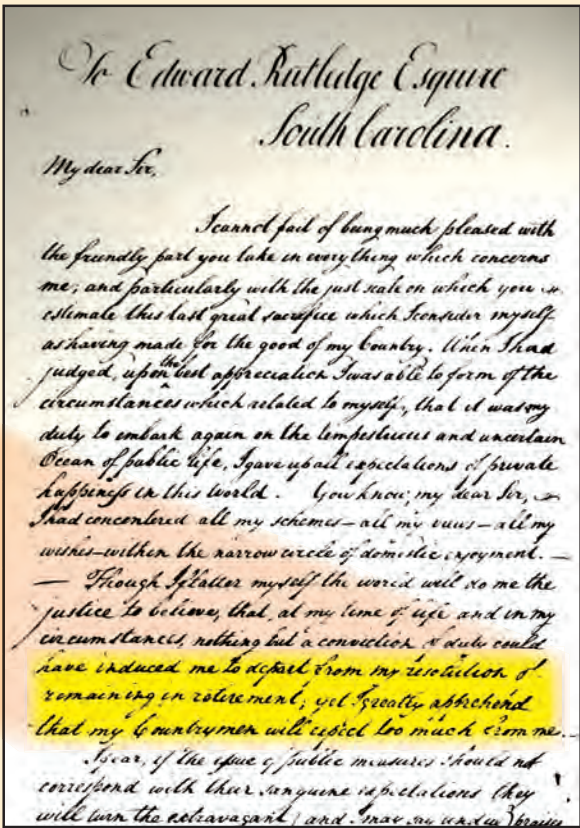 To Edward Rutledge Esquire
South Carolina.
My dear Sir,
I cannot fail of being much pleased with
the friendly part you take in everything which concerns
me; and particularly with the just scale on which you
estimate this last great sacrifice which I consider myself
as having made for the good of my Country. When I had
judged, upon the best appreciation I was able to form of the
circumstances which related to myself, that it was my
duty to embark again on the tempestuous and uncertain
Ocean of public life, I gave up all expectations of private
happiness in this world. You know, my dear Sir,
I had concentered all my schemes—all my views—all my
wishes—within the narrow circle of domestic enjoyment.—
— Though I flatter myself the world will do me the
justice to believe, that, at my time of life and in my
circumstances, nothing but a conviction of duty could
have induced me to depart from my resolution of
remaining in retirement; yet I greatly apprehend
that my Countrymen will expect too much from me.—
I fear, if the issue of public measures should not
correspond with their sanguine expectations they
will turn the extravagant, and I may say undue praises